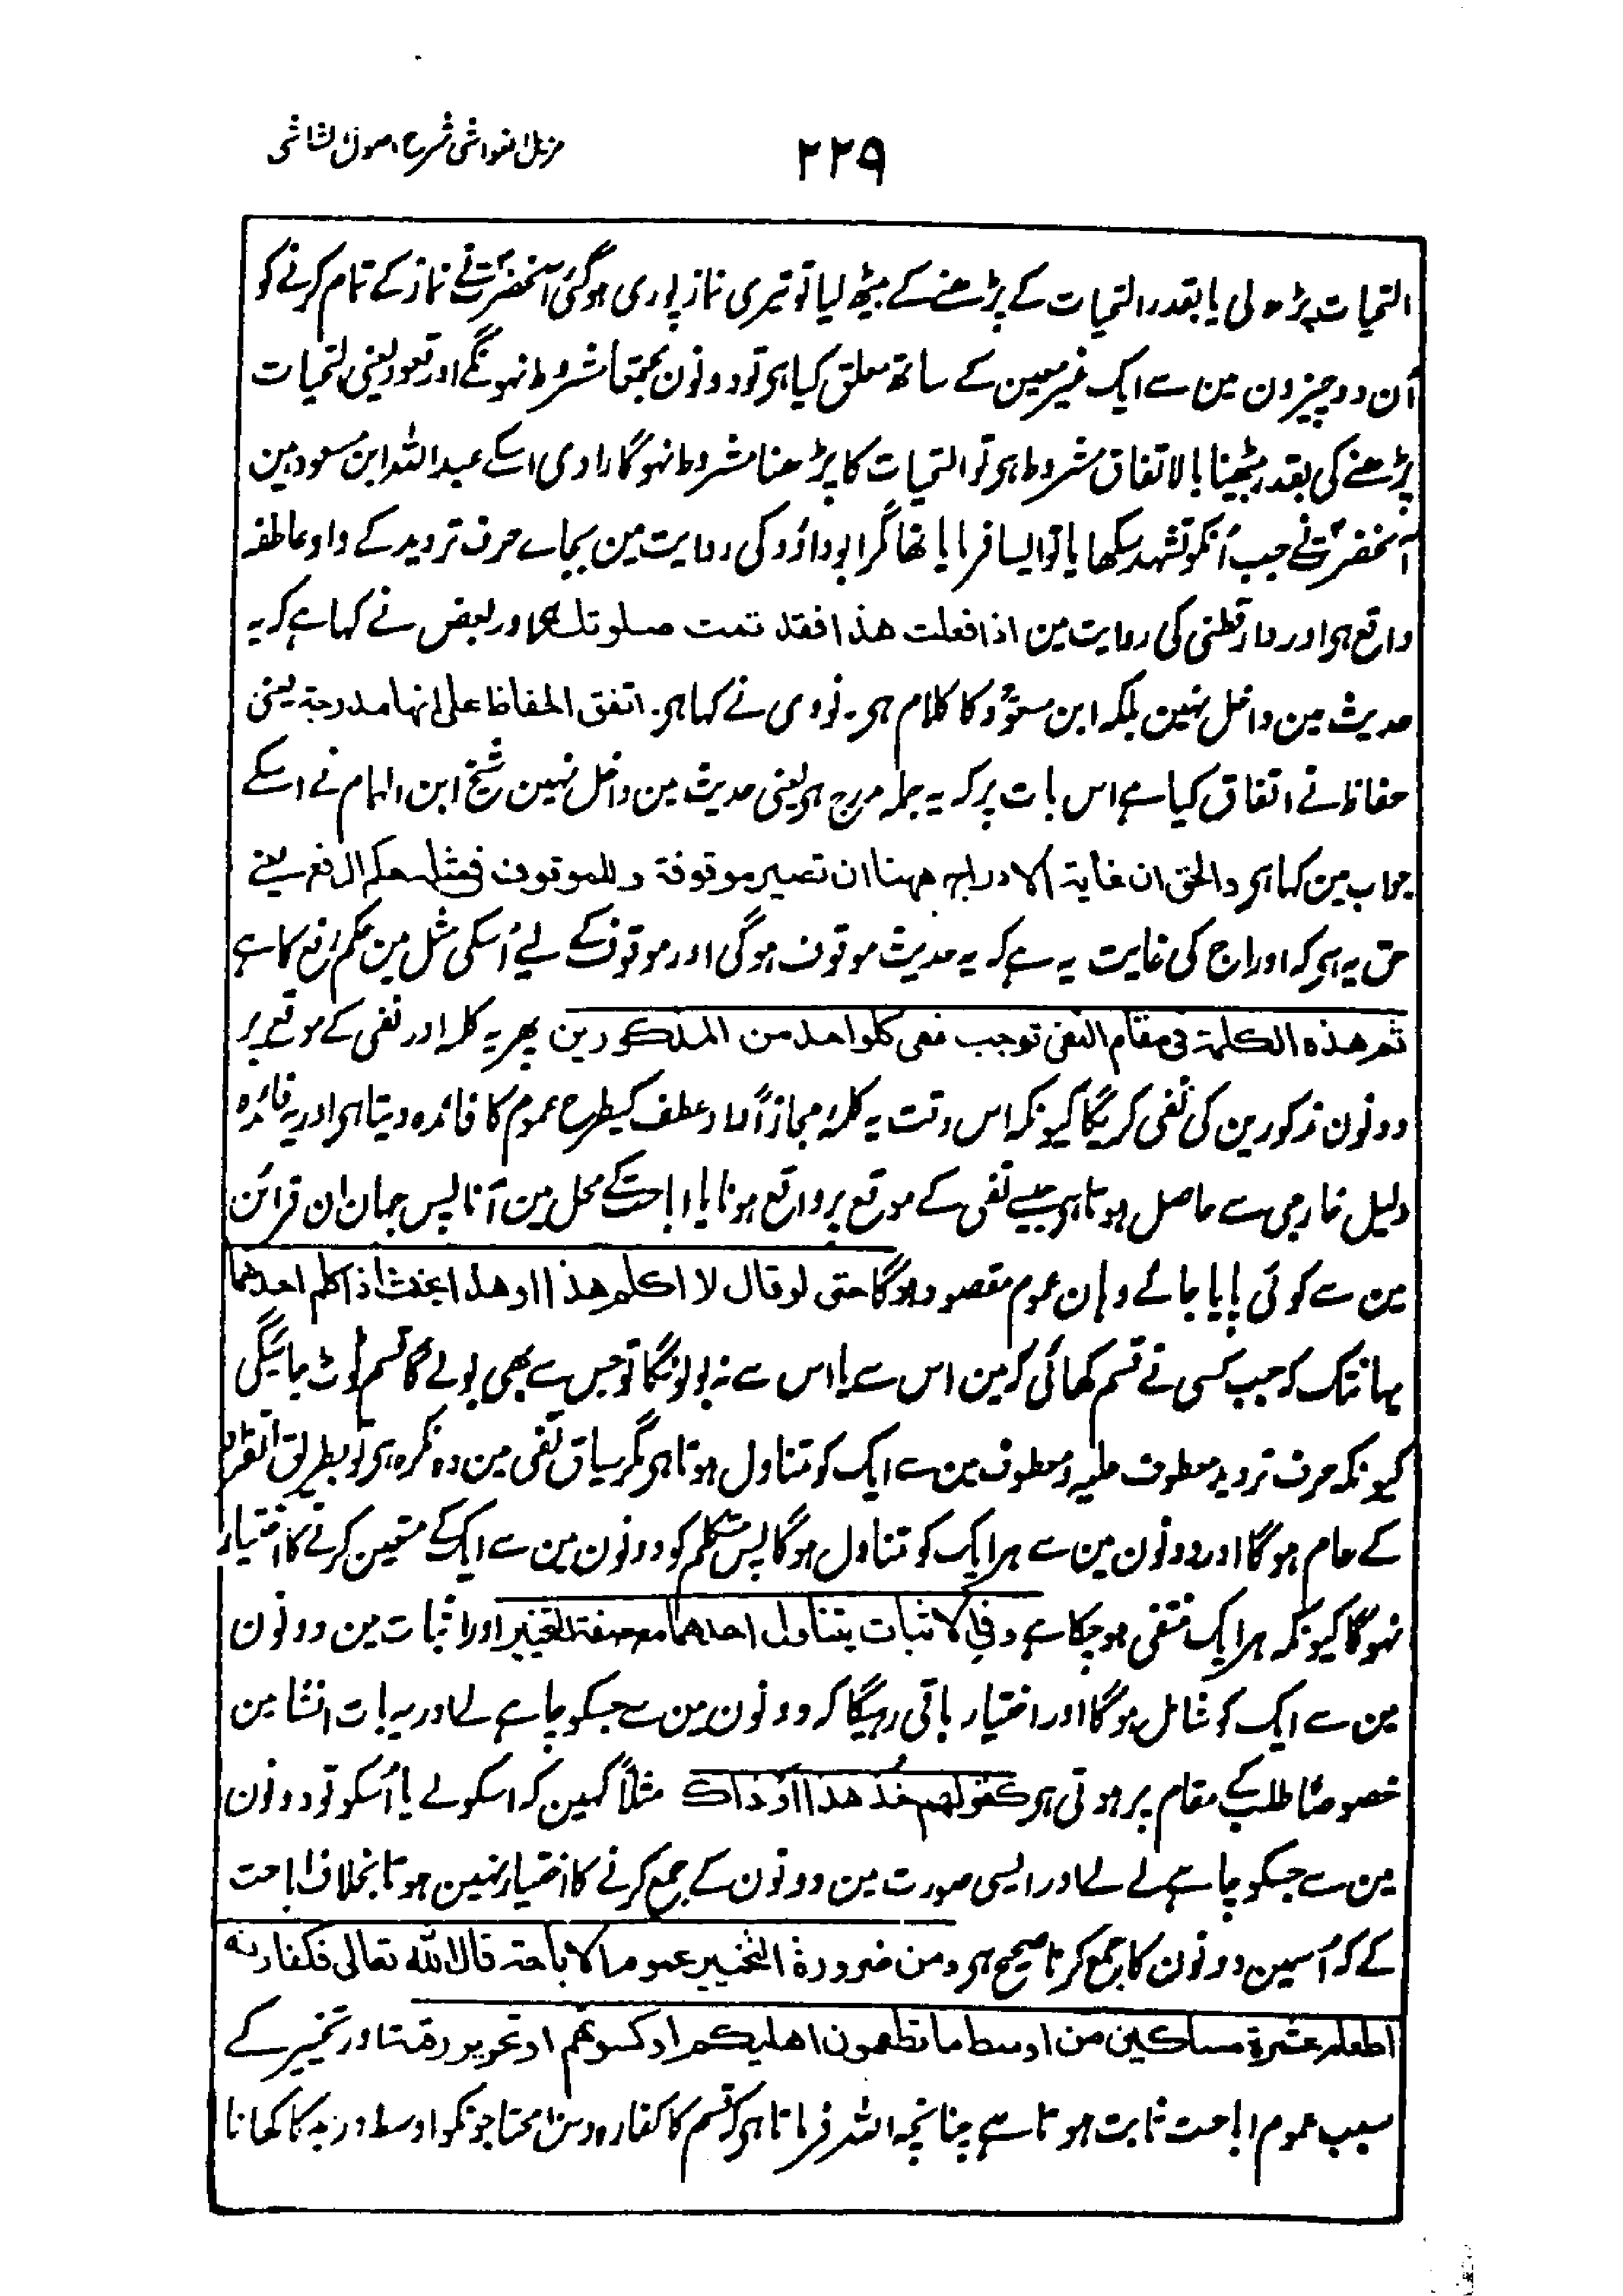 مزیل الغواشی شرح اصول الشاشی
۲۲۹
التحیات پڑھ لی یا بقدر التحیات کے پڑھنے کے بیٹھ لیا تو تیری نماز پوری ہوگئی آنحضرتؐ نے نماز کے تمام کرنے کو
اُن دو چیزون مین سے ایک غیر معین کے ساتھ معلق کیا ہی تو دونون مجتمعًا شروط نہونگے اور قعود یعنی التحیات
پڑھنے کی بقدر بیٹھنا بالاتفاق مشروط ہی تو التحیات کا پڑھنا مشروط نہوگا راوی اسکے عبداللہ ابن مسعود ہین
آنحضرتؐ نے جب اُنکو تشہد سکھایا تو ایسا فرمایا تھا مگر ابوداؤد کی روایت مین بجاے حرف تردید کے واو عاطفہ
واقع ہی اور دارقطنی کی روایت مین اذا فعلت هذا فقد تمت صلوتك ہی اور بعض نے کہا ہے کہ یہ
حدیث مین داخل نہین بلکہ ابن مسعودؓ کا کلام ہی۔ نووی نے کہا ہی۔ اتفق الحفاظ علی انها مدرجة یعنی
حفاظ نے اتفاق کیا ہے اس بات پر کہ یہ جملہ مدرج ہی یعنی حدیث مین داخل نہین شیخ ابن الہمام نے اسکے
جواب مین کہا ہی والحق ان غایة الادراج ههنا ان تصیر موقوفة وللموقوف فی مثله حکم الرفع یعنے
حق یہ ہی کہ ادراج کی غایت یہ ہے کہ یہ حدیث موقوف ہوگی اور موقوف کے لیے اُسکی مثل مین حکم رفع کا ہے
ثم هذه الکلمة فی مقام النفی توجب نفی کل واحد من المذکورین پھر یہ کلمہ اور نفی کے موقع پر
دونون مذکورین کی نفی کریگا کیونکہ اس وقت یہ کلمہ مجازًا واو عطف کیطرح عموم کا فائدہ دیتا ہی اور یہ فائدہ
دلیل خارجی سے حاصل ہوتا ہی جیسے نفی کے موقع پر واقع ہونا یا اباحت کے محل مین آنا پس جہان ان قرائن
مین سے کوئی پایا جائے وہان عموم مقصود ہوگا حتی لو قال لا اکلم هذا او هذا یحنث اذا کلم احدهما
یہانتک کہ جب کسی نے قسم کھائی کہ مین اس سے یا اس سے نہ بولونگا تو جس سے بھی بولے گا قسم ٹوٹ جائیگی
کیونکہ حرف تردید معطوف علیہ و معطوف مین سے ایک کو متناول ہوتا ہی مگر سیاق نفی مین وہ نکرہ ہی تو بطریق انفراد
کے عام ہوگا اور دونون مین سے ہر ایک کو متناول ہوگا پس متکلم کو دونون مین سے ایک کے متعین کرنے کا اختیار
نہوگا کیونکہ ہر ایک منتفی ہوچکا ہے وفی الاثبات یتناول احدهما مع صفة التخییر اور اثبات مین دونون
مین سے ایک کو شامل ہوگا اور اختیار باقی رہیگا کہ دونون مین سے جسکو چاہے لے اور یہ بات انشا مین
خصوصًا طلب کے مقام پر ہوتی ہی کقولهم خُذ هذا اَوْ ذاك مثلاً کہین کہ اسکو لے یا اُسکو تو دونون
مین سے جسکو چاہے لے لے اور ایسی صورت مین دونون کے جمع کرنے کا اختیار نہین ہوتا بخلاف اباحت
کے کہ اُسمین دونون کا جمع کرنا صحیح ہی ومن ضرورة التخییر عموم الاباحة قال الله تعالی فکفارته
اطعام عشرة مساکین من اوسط ما تطعمون اهلیکم او کسوتهم او تحریر رقبة اور تخییر کے
سبب عموم اباحت ثابت ہوتا ہے چنانچہ اللہ فرماتا ہی کہ قسم کا کفارہ دس محتاجونکو اوسط درجہ کا کھانا